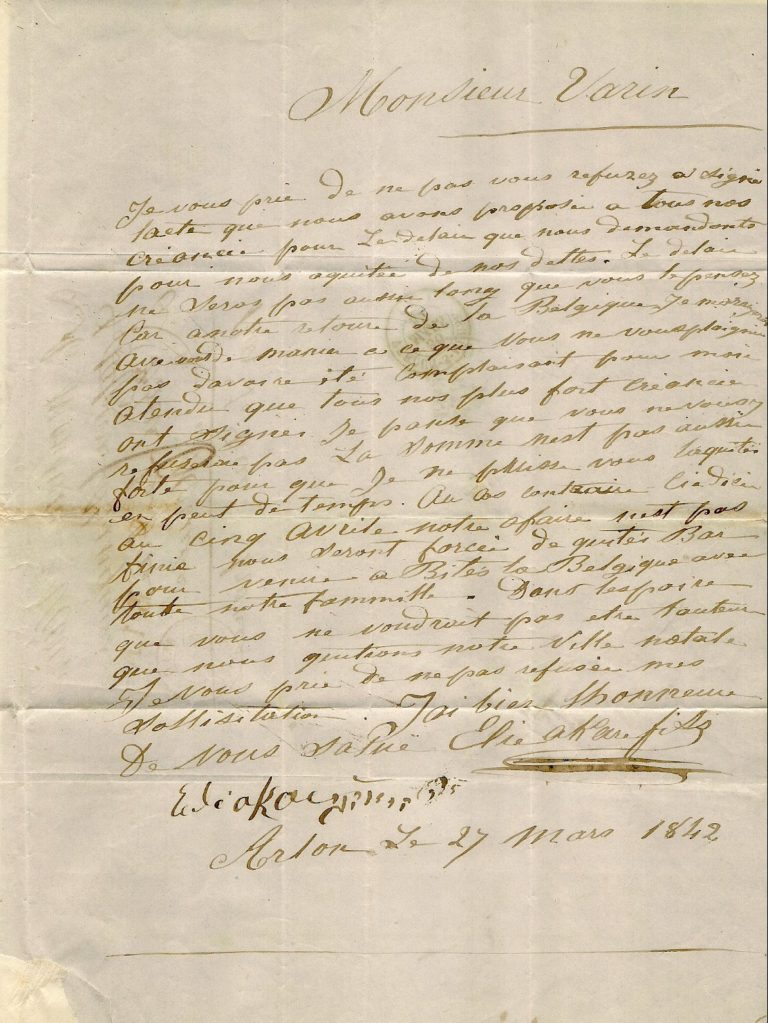 Monsieur Varin
Je vous prie de ne pas vous refuzez a signé
lacte que nous avons proposée a tous nos
créancié pour Le delaie que nous demandonts
pour nous aquitée de nos dettes. Le delaie
ne Seras pas aussi long que vous le pensez
Car a notre retoure de la Belgique, Je
de manier a ce que Vous ne vous plaigné
pas davoire été Complaisant pour moi
atendu que tous nos plus fort Créancié
ont Signés. Je panse que vous ne vous
refuserié pas La Somme nest pas aussie
forte pour que Je ne puisse vous laquités
en peut de temps. Au cas contraire Ciedici
au cinq Avrile notre afaire nest pas
finie nous Seront forcée de quités Bar
pour venire a Bités la Belgique avec
toute notre fammille. Dans lespoire
que vous ne voudrait pas etre lauteur
que nous quitions notre Ville natale
Je Vous prie de ne pas refusée mes
Sollisitation. J'ai bien lhonneure
De Vous Saluë Elie akare fils
Arlon Le 27 Mars 1842